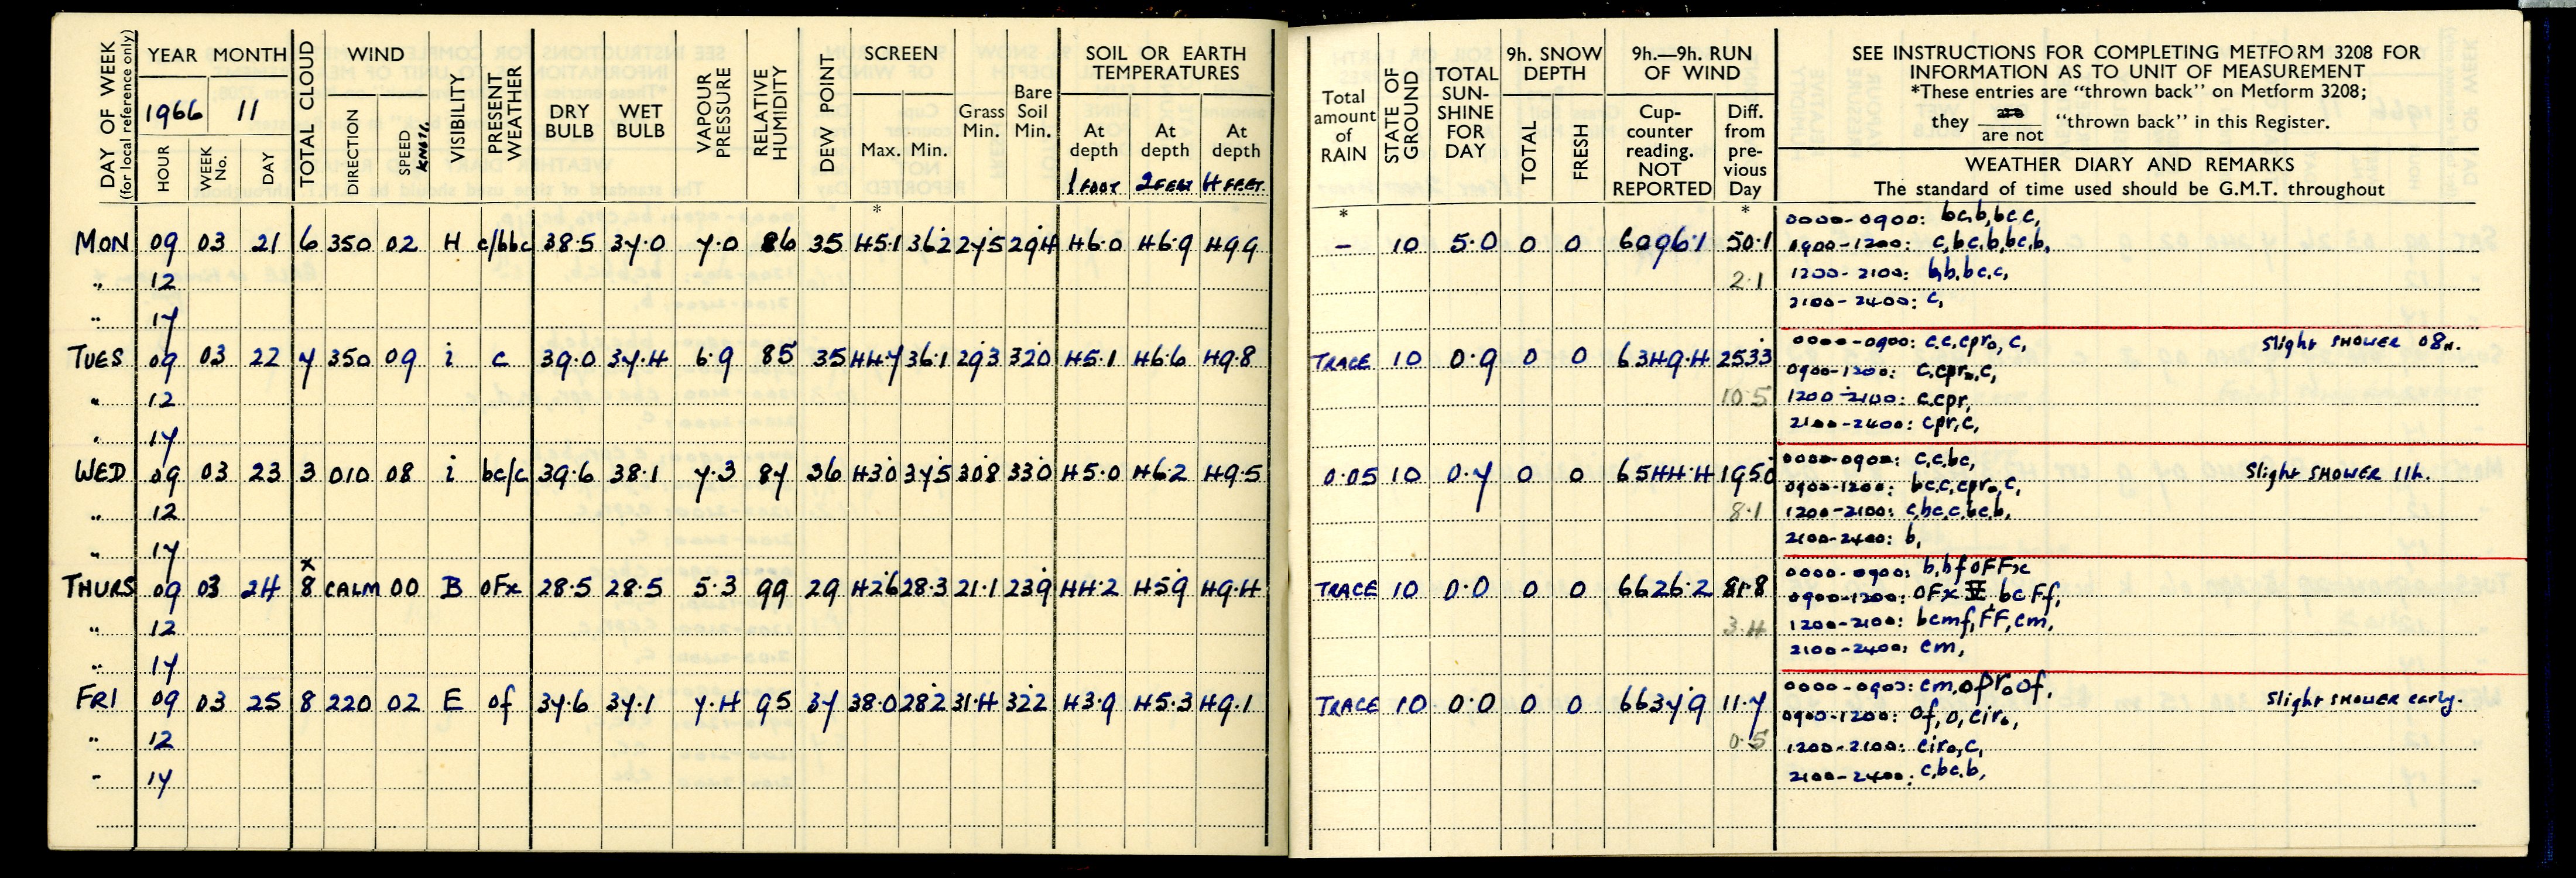 DAY OF WEEK
(for local reference only)
YEAR MONTH
1966 11
HOUR
WEEK No.
DAY
TOTAL CLOUD
WIND
DIRECTION
SPEED KNOTS.
VISIBILITY
PRESENT WEATHER
DRY BULB
WET BULB
VAPOUR PRESSURE
RELATIVE HUMIDITY
DEW POINT
SCREEN
Max. Min.
Grass Min.
Bare Soil Min.
SOIL OR EARTH TEMPERATURES
At depth 1 FOOT
At depth 2 FEET
At depth 4 FEET.
*
MON 09 03 21 6 350 02 H c/bbc 38.5 37.0 7.0 86 35 45.1 36.2 27.5 29.4 46.0 46.9 49.9
" 12
" 17
TUES 09 03 22 7 350 09 i c 39.0 37.4 6.9 85 35 44.7 36.1 29.3 32.0 45.1 46.6 49.8
" 12
" 17
WED 09 03 23 3 010 08 i bc/c 39.6 38.1 7.3 87 36 43.0 37.5 30.8 33.0 45.0 46.2 49.5
" 12
" 17
x
THURS 09 03 24 8 CALM 00 B OFx 28.5 28.5 5.3 99 29 42.6 28.3 21.1 23.9 44.2 45.9 49.4
" 12
" 17
FRI 09 03 25 8 220 02 E of 37.6 37.1 7.4 95 37 38.0 28.2 31.4 32.2 43.9 45.3 49.1
" 12
" 17
Total amount of RAIN
STATE OF GROUND
TOTAL SUN-SHINE FOR DAY
9h. SNOW DEPTH
TOTAL
FRESH
9h.—9h. RUN OF WIND
Cup-counter reading. NOT REPORTED
Diff. from pre-vious Day
SEE INSTRUCTIONS FOR COMPLETING METFORM 3208 FOR
INFORMATION AS TO UNIT OF MEASUREMENT
*These entries are "thrown back" on Metform 3208;
they are / are not "thrown back" in this Register.
WEATHER DIARY AND REMARKS
The standard of time used should be G.M.T. throughout
* *
– 10 5.0 0 0 6096.1 50.1
2.1
0000-0900: bc,b,bc,c,
0900-1200: c,bc,b,bc,b,
1200-2100: b,b,bc,c,
2100-2400: c,
TRACE 10 0.9 0 0 6349.4 253.3
10.5
0000-0900: c,c,cpr₀, c, Slight SHOWER 08h.
0900-1200: c,cpr₀,c,
1200-2100: c.cpr,
2100-2400: cpr,c,
0.05 10 0.7 0 0 6544.4 195.0
8.1
0000-0900: c,c,bc,
0900-1200: bc,c,cpr₀,c, Slight SHOWER 11h.
1200-2100: c,bc,c,bc,b,
2100-2400: b,
TRACE 10 0.0 0 0 6626.2 81.8
3.4
0000-0900: b,bfOFFx
0900-1200: OFx V bcFf,
1200-2100: bcmf,FF,cm,
2100-2400: cm,
TRACE 10 0.0 0 0 6637.9 11.7
0.5
0000-0900: cm,opr₀of, Slight SHOWER early.
0900-1200: Of, O, cir₀,
1200-2100: cir₀,c,
2100-2400: c,bc,b,